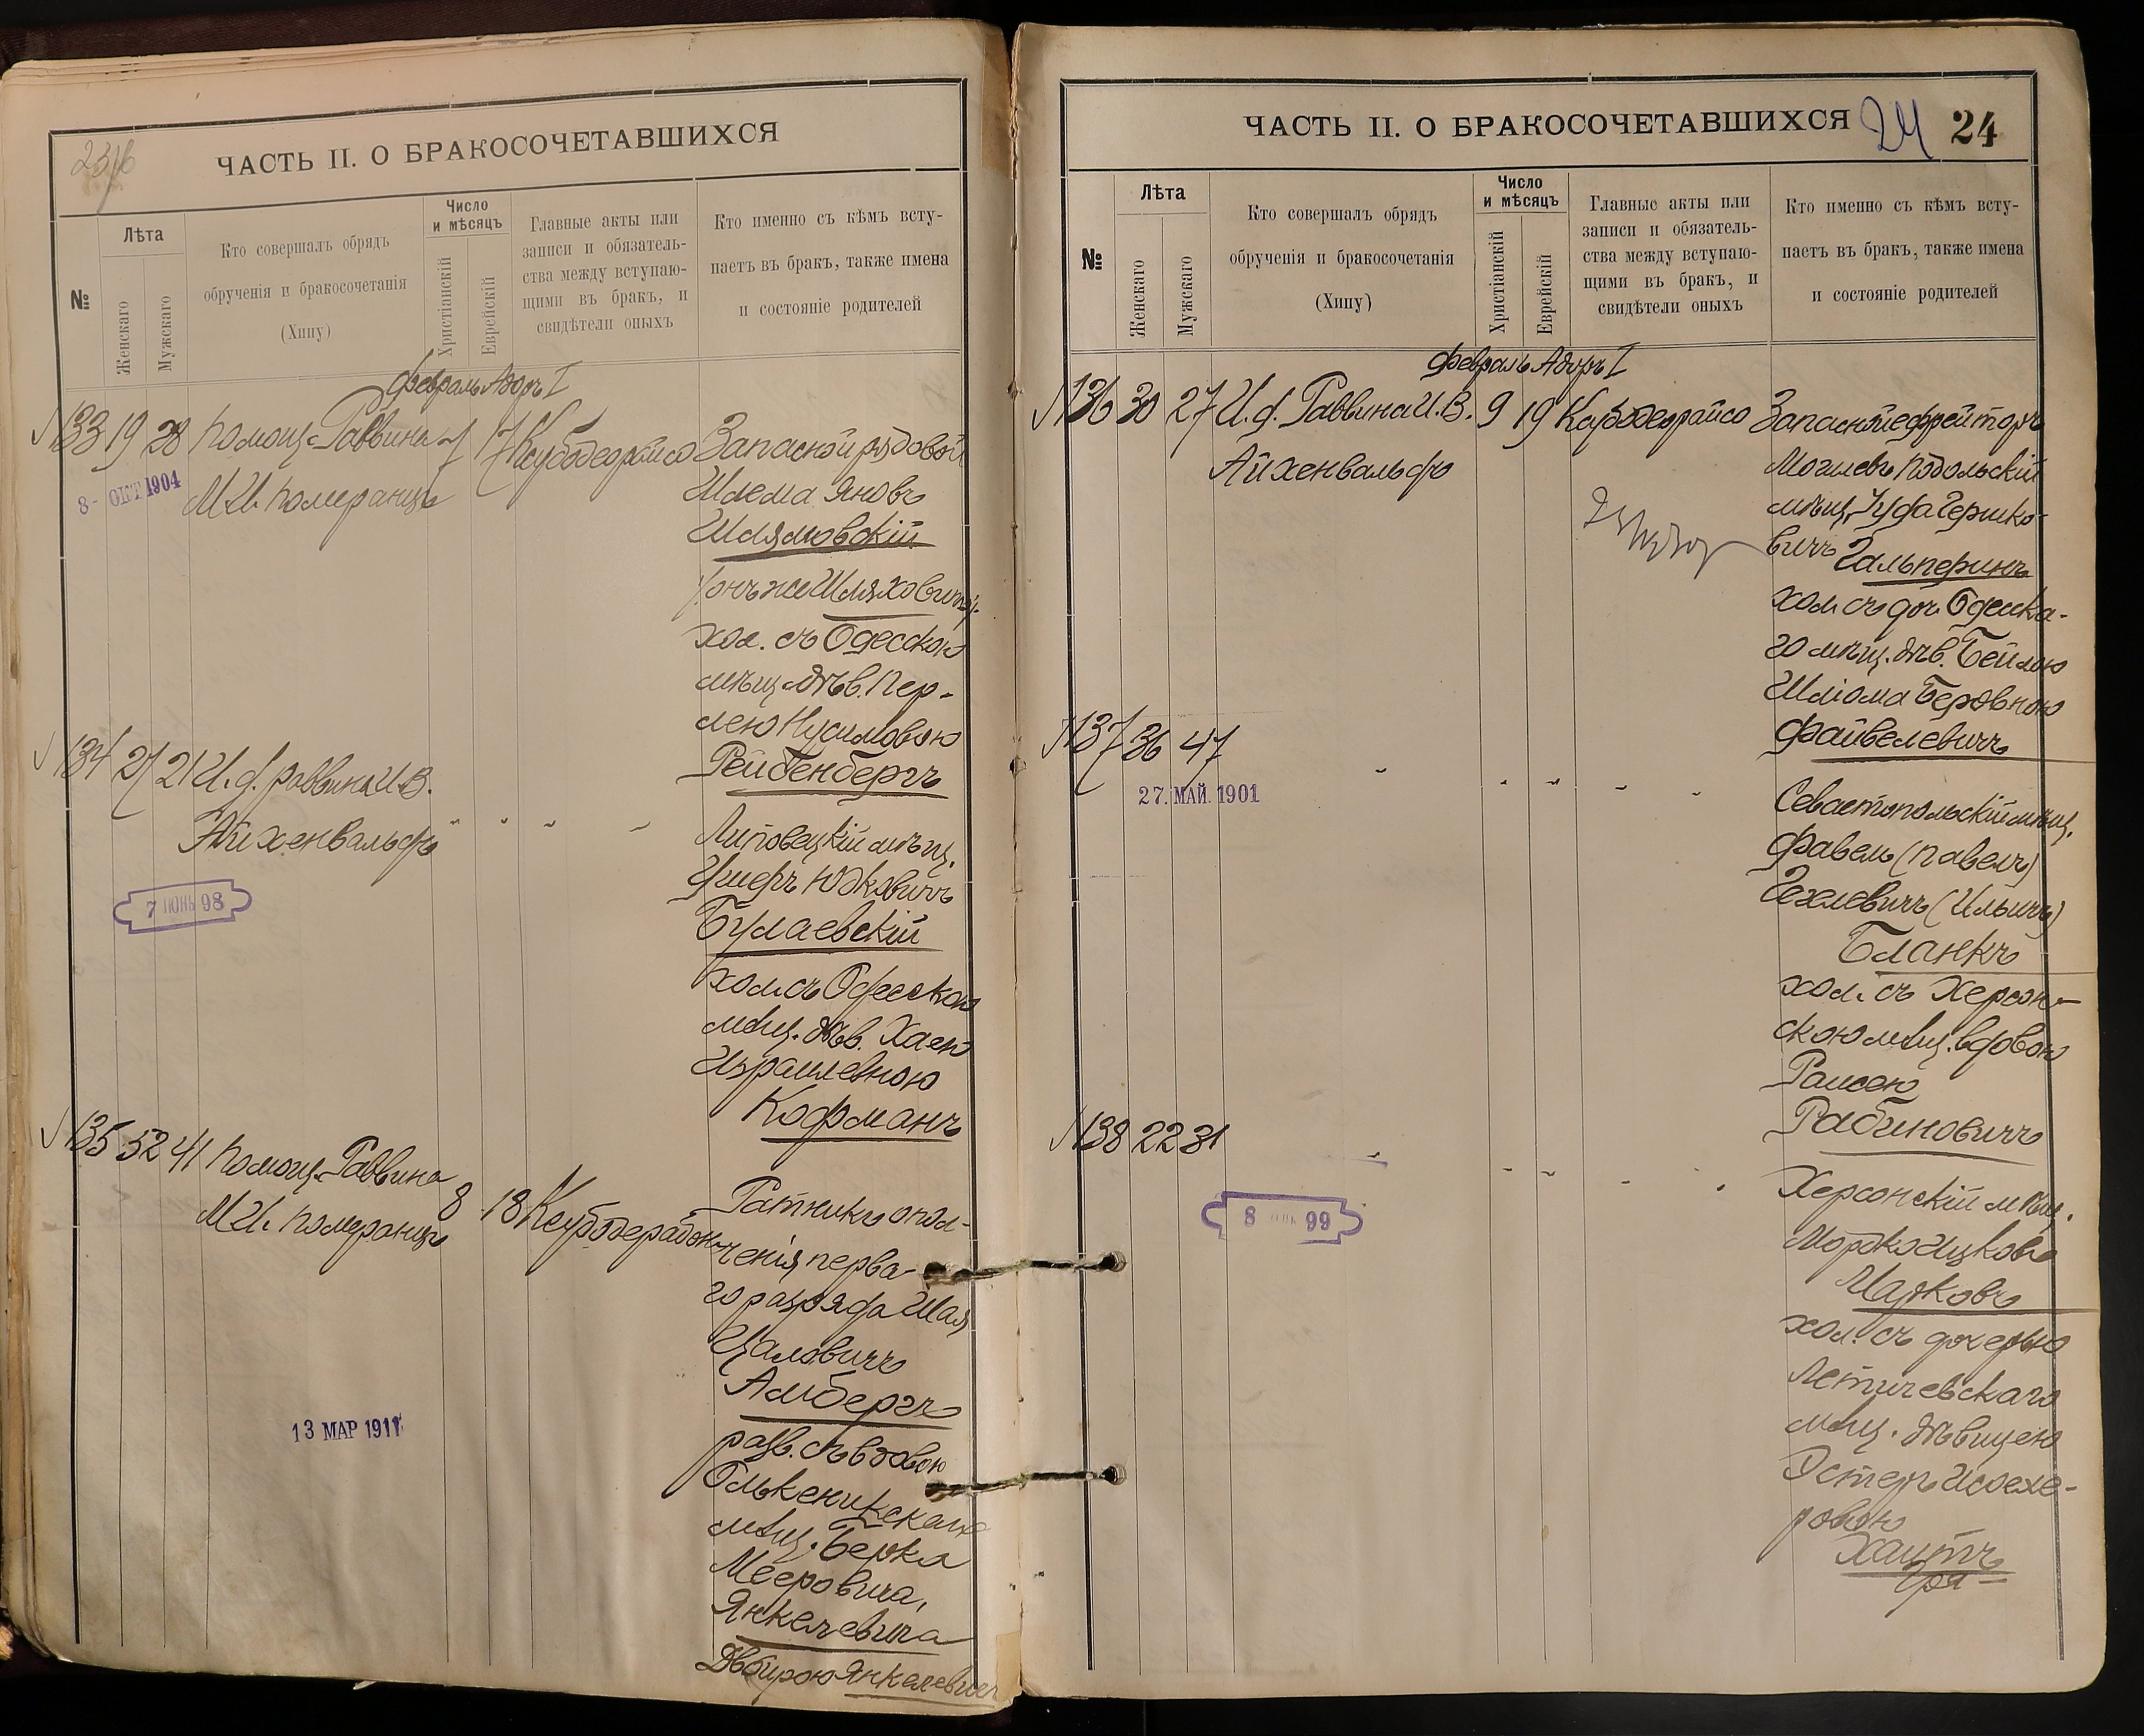 ЧАСТЬ II. О БРАКОСОЧЕТАВШИХСЯ
№
Лѣта
Женскаго
Мужскаго
Кто совершалъ обрядъ
обрученія и бракосочетанія
(Хипу)
Число
и мѣсяцъ
Христіанскій
Еврейскій
Главные акты или
записи и обязатель-
ства между вступаю-
щими въ бракъ, и
свидѣтели оныхъ
Кто именно съ кѣмъ всту-
паетъ въ бракъ, также имена
и состояніе родителей
Февраль Адоръ I
133 19 28 Помощ. Раввина 7 17
М. И. Померанцъ
8 - ОКТ 1904
Запасной рядовой
Шлема Яновъ
Шлямовскій
онъ же Шляховичъ
хол. съ Одесскою
мѣщ. дѣв. Пер-
лею Нусимовою
Рейбенбергъ
134 21 21 И. д. раввина И. В.
Айхенвальдъ
7 ІЮНЬ 98
Липовецкій мѣщ.
Ушеръ Юдковичъ
Булаевскій
хол. съ Одесскою
мѣщ. дѣв. Хаею
Израилевною
Кофманъ
135 52 41 Помощ. Раввина 8 18
М. И. Померанцъ
13 МАР 1911
Ратникъ опол-
ченія перва-
го разряда Шая
Цаловичъ
Амбергъ
разв. съ вдовою
Олькеникскаго
мѣщ. Берка
Мееровича,
Янкелевича
Двейрою Янкелевич
ЧАСТЬ II. О БРАКОСОЧЕТАВШИХСЯ 24 24
№
Лѣта
Женскаго
Мужскаго
Кто совершалъ обрядъ
обрученія и бракосочетанія
(Хипу)
Число
и мѣсяцъ
Христіанскій
Еврейскій
Главные акты или
записи и обязатель-
ства между вступаю-
щими въ бракъ, и
свидѣтели оныхъ
Кто именно съ кѣмъ всту-
паетъ въ бракъ, также имена
и состояніе родителей
Февраль Адоръ I
136 30 27 И. д. Раввина И. В. 9 19
Айхенвальдъ
Запасной ефрейторъ
Могилевъ Подольскій
мѣщ. Іуда Гершко-
вичъ Гальперинъ
хол. съ доч. Одесска-
го мѣщ. дѣв. Бейлою
Шліома Беровною
Файвелевичъ
137 36 47
27. МАЙ. 1901
Севастопольскій мѣщ.
Фавель (Павелъ)
Гехелевичъ (Ильичъ)
Бланкъ
хол. съ Херсон-
скою мѣщ. вдовою
Раисею
Рабиновичъ
138 22 31
8 99
Херсонскій мѣщ.
Мордко Ицковъ
Марковъ
хол. съ дочерью
Летичевскаго
мѣщ. дѣвицею
Эстеръ Исохе-
ровою
Хаитъ